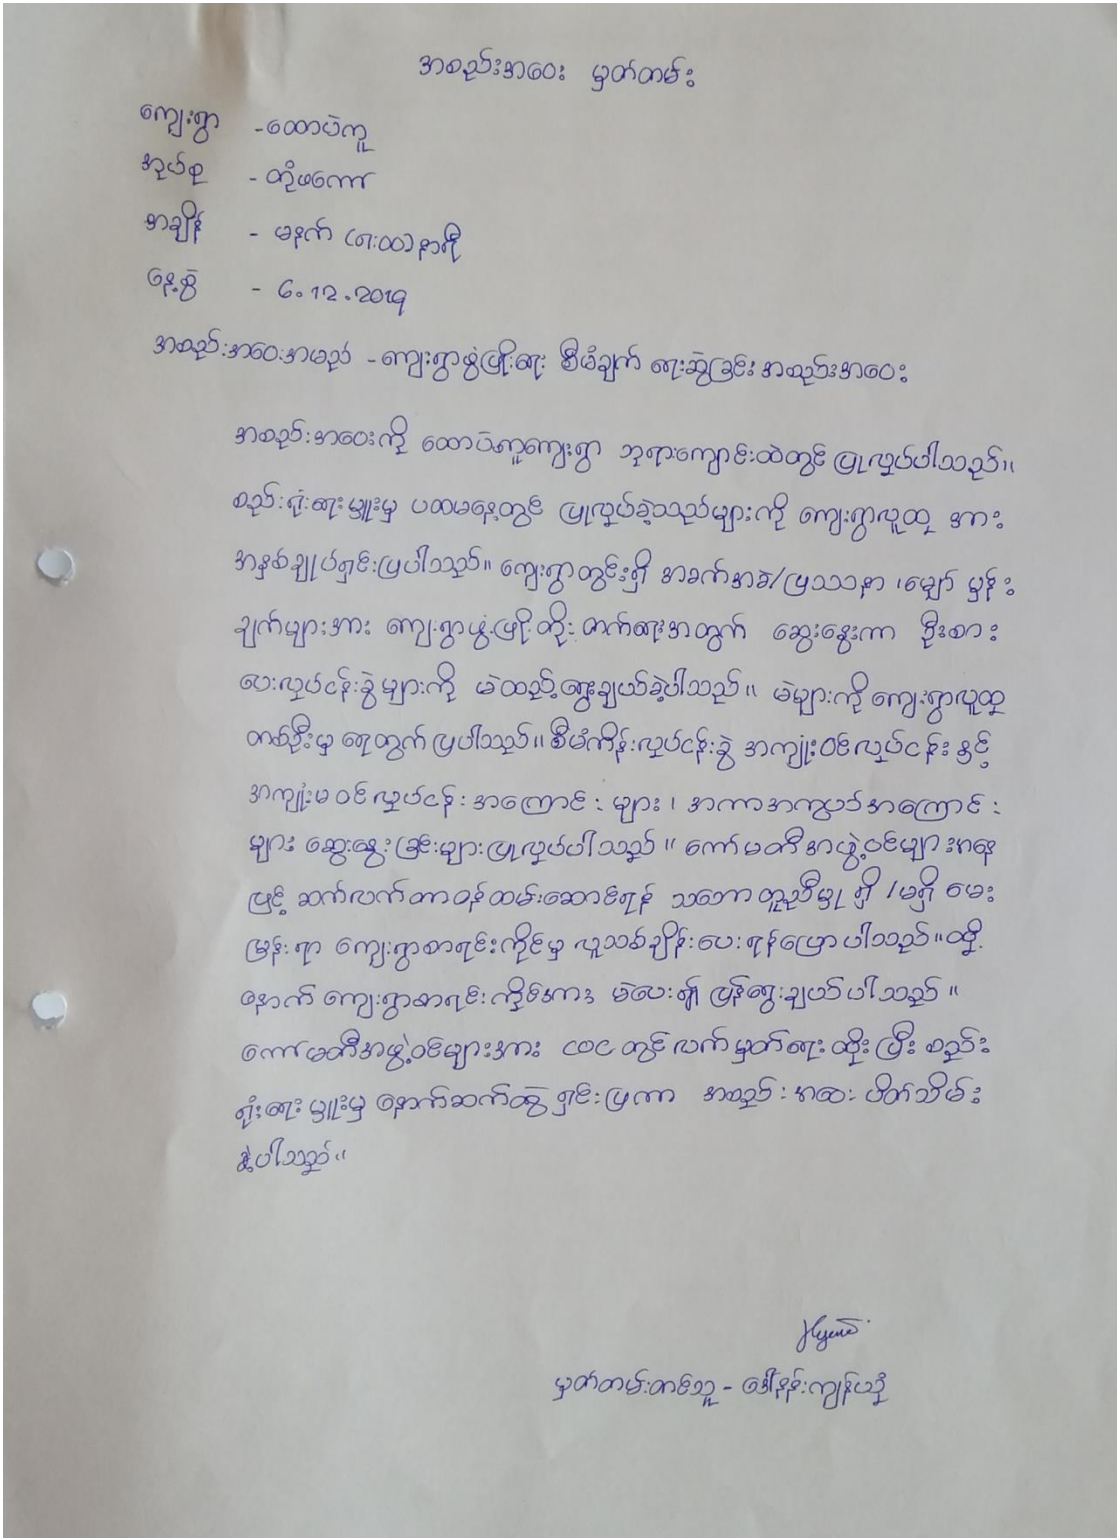 အစည်းအဝေး မှတ်တမ်း
ကျေးရွာ -ထောပဲကူ
အုပ်စု - တုံဖကော်
အချိန် - မနက် (၈:ထ၀)နာရီ
နေ့စွဲ - 6.12.2019
အစည်းအဝေးအမည် - ကျေးရွာဖွံ့ဖြိုးရေး စီမံချက် ရေးဆွဲခြင်း အစည်းအဝေး
အစည်းအဝေးကို ထောပဲကူကျေးရွာ ဘုရားကျောင်းထဲတွင် ပြုလုပ်ပါသည်။
စည်းရုံးရေးမှူးမှ ပထမနေ့တွင် ပြုလုပ်ခဲ့သည်များကို ကျေးရွာလူထု အား
အနှစ်ချုပ်ရှင်းပြပါသည်။ ကျေးရွာတွင်းရှိ အခက်အခဲ/ပြဿနာ ၊မျှော်မှန်း
ချက်များအား ကျေးရွာဖွံ့ဖြိုးတိုးတက်ရေးအတွက် ဆွေးနွေးကာ ဦးစား
ပေးလုပ်ငန်းခွဲများကို မဲထည့်ရွေးချယ်ခဲ့ပါသည်။ မဲများကို ကျေးရွာလူထု
တစ်ဦးမှ ရေတွက်ပြပါသည်။ စီမံကိန်းလုပ်ငန်းခွဲ အကျုံးဝင်လုပ်ငန်းနှင့်
အကျုံးမဝင်လုပ်ငန်းအကြောင်းများ၊ အကာအကွယ်အကြောင်း
များ ဆွေးနွေးခြင်းများပြုလုပ်ပါသည်။ ကော်မတီအဖွဲ့ဝင်များအနေ
ဖြင့် ဆက်လက်တာဝန်ထမ်းဆောင်ရန် သဘောတူညီမှု ရှိ/မရှိ မေး
မြန်းရာ ကျေးရွာစာရင်းကိုင်မှ လူသစ်ချိန်းပေးရန်ပြောပါသည်။ ထို့
နောက် ကျေးရွာစာရင်းကိုင်အား မဲပေး၍ ပြန်ရွေးချယ်ပါသည်။
ကော်မတီအဖွဲ့ဝင်များအား ငဝင တွင် လက်မှတ်ရေးထိုးပြီး စည်း
ရုံးရေးမှူးမှ နောက်ဆက်တွဲ ရှင်းပြကာ အစည်းအဝေး ပိတ်သိမ်း
ခဲ့ပါသည်။
မှတ်တမ်းတင်သူ - ဒေါ်နန်းကျန်ယုံ